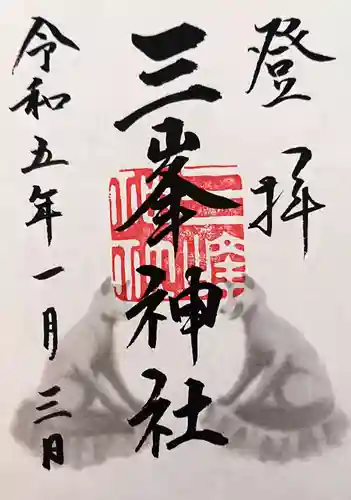 登拝
三峯神社
令和五年一月三日